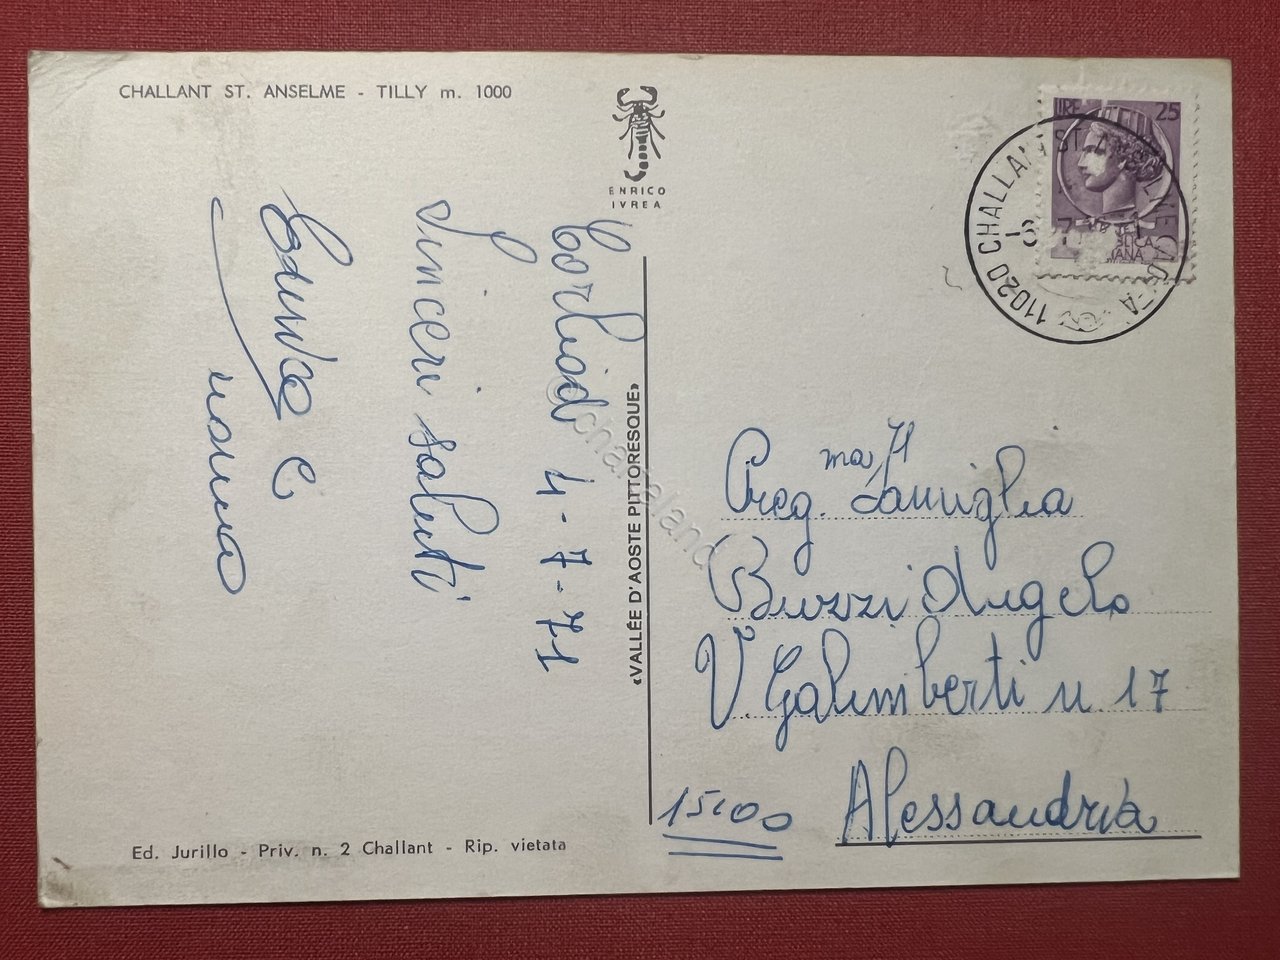 CHALLANT ST. ANSELME - TILLY m. 1000
ENRICO
IVREA
LIRE 25
11020 CHALLANT ST. ANSELME AOSTA
Corliod 4-7-71
Sinceri saluti
e
nonna
«VALLÉE D'AOSTE PITTORESQUE»
© chartaland
Preg.ma Famiglia
Buzzi Angelo
V. Galimberti n 17
15100 Alessandria
Ed. Jurillo - Priv. n. 2 Challant - Rip. vietata